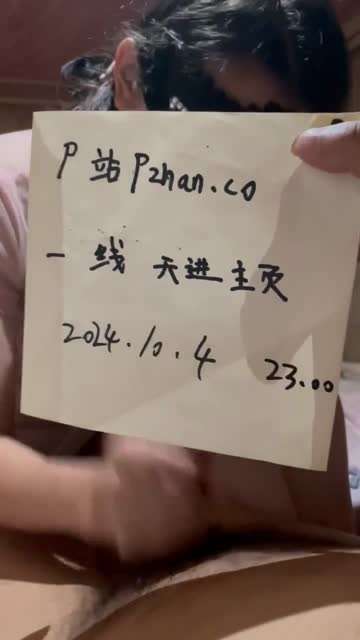 P站Pzhan.co
一线天进主页
2024.10.4 23.00